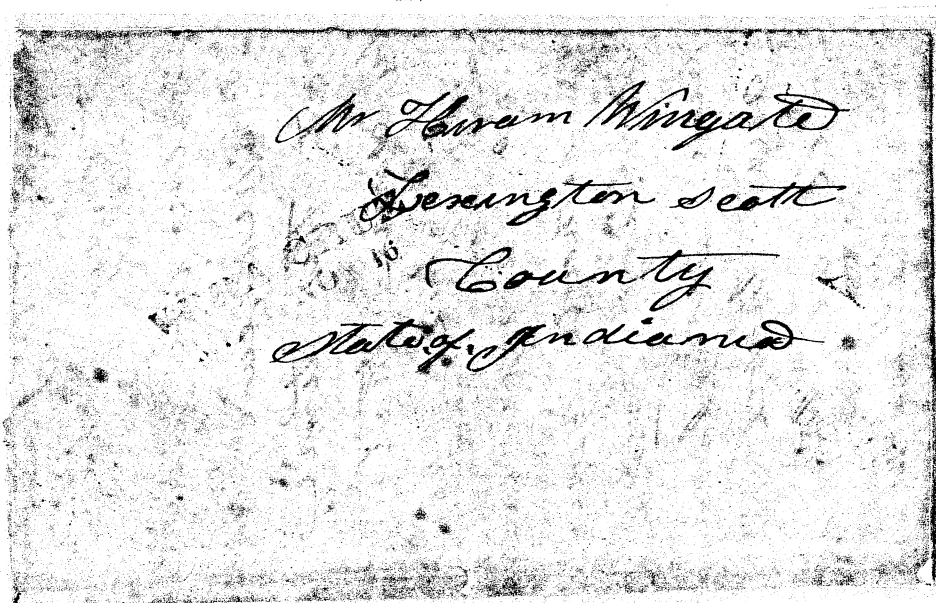 Mr Hiram Wingate
Lexington Scott
County
State of Indiana
16